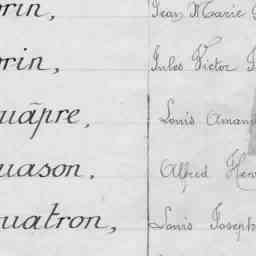 orin, Jean Marie
orin, Jules Victor
uâpre, Louis Aman
uason, Alfred Hen
uatron, Louis Joseph